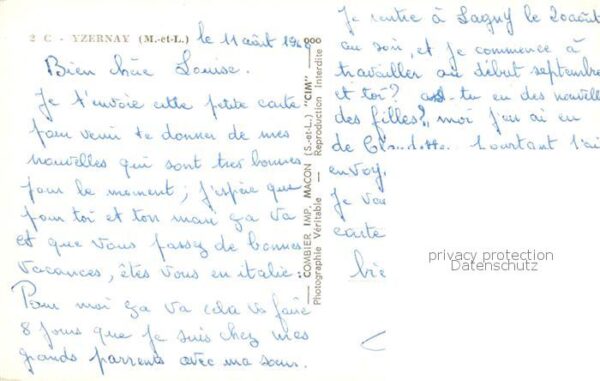 2 C - YZERNAY (M.-et-L.) le 11 août 1968
Bien chère Louise.
Je t'envoie cette petite carte
pour venir te donner de mes
nouvelles qui sont tres bonnes
pour le moment; j'espère que
pour toi et ton mari ça va
et que vous passez de bonnes
vacances, êtes vous en italie.
Pour moi ça va cela va faire
8 jours que je suis chez mes
grands parrents avec ma sœur.
COMBIER IMP. MACON (S.-et-L.) "CIM"
Photographie Véritable - Reproduction Interdite
Je rentre à Lagny le 20 août
au soir, et je commence à
travailler au début septembre
et toi? as-tu eu des nouvelles
des filles? moi j'en ai eu
de pourtant j'ai
envoy
Je
carte
bie
privacy protection
Datenschutz